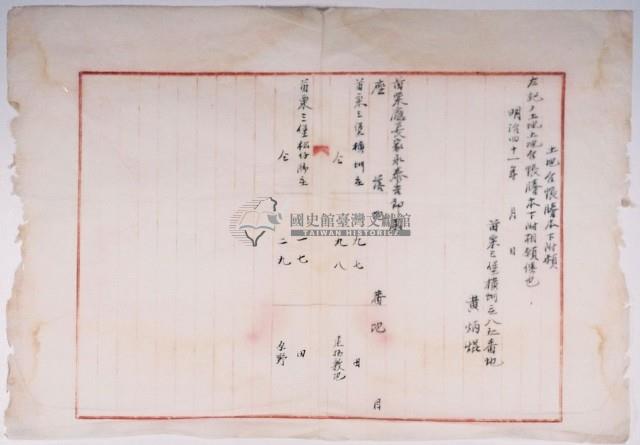 土地台帳謄本下附願
左記ノ土地土地台帳謄本下附相願候也
明治四十一年 月 日
苗栗三堡横圳庄八二番地
黄炳焜
苗栗廳長家永泰吉郎殿
座 落 番 地 目
苗栗三堡横圳庄 九七
仝 九八
苗栗三堡
仝 二九 原野
一七 田
國史館臺灣文獻館
TAIWAN HISTORICA